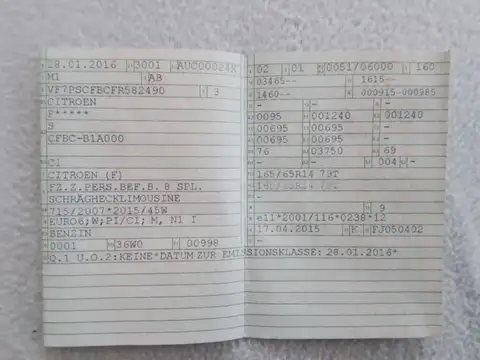 28.01.2016 3001 AUC00024X
M1 AB
VF7PSCFBCFR582490 3
CITROEN
P*****
S
CFBC-B1A000
CI
CITROEN (F)
FZ.Z.PERS.BEF.B. 8 SPL.
SCHRÄGHECKLIMOUSINE
715/2007*2015/45W
EURO6;W;PI/CI; M, N1 I
BENZIN
0001 36W0 00998
Q.1 U.O.2:KEINE*DATUM ZUR EMISSIONSKLASSE: 28.01.2016*
02 01 0051/06000 160
03465-- 1615--
1460-- 000915-000985
- - -
0095 001240 001240
00695 00695 -
00695 00695 -
76 03750 69
- - 004 -
165/65R14 79T
165/65R14 79T
- 9
e11*2001/116*0238*12
17.04.2015 K FJ050402
-